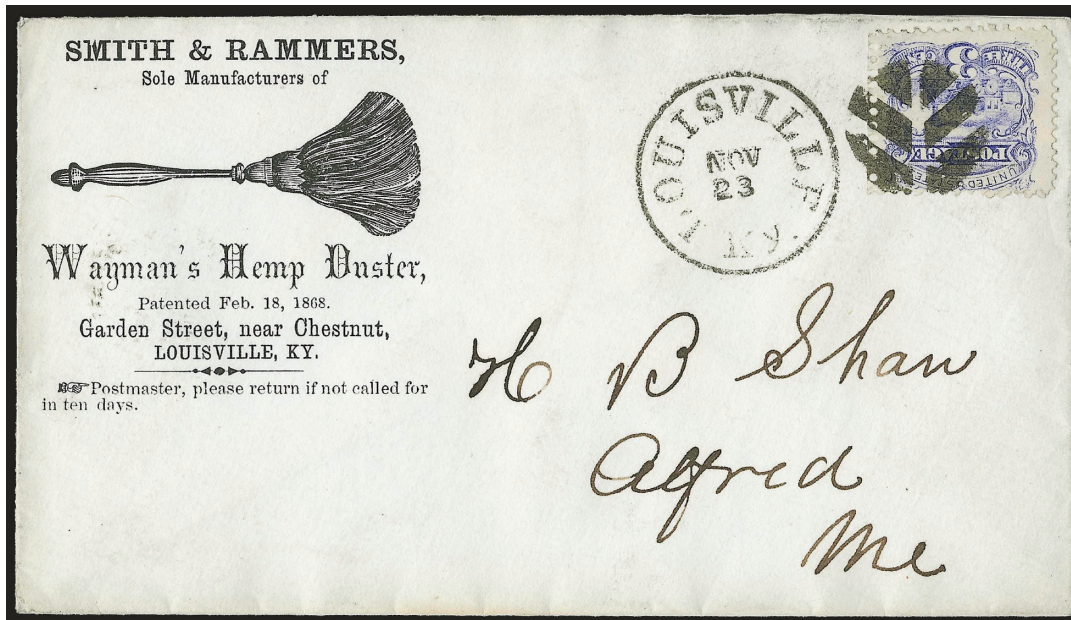 SMITH & RAMMERS,
Sole Manufacturers of
Wayman's Hemp Duster,
Patented Feb. 18, 1868.
Garden Street, near Chestnut,
LOUISVILLE, KY.
☞Postmaster, please return if not called for
in ten days.
LOUISVILLE KY.
NOV
23
3
POSTAGE
UNITED
H B Shaw
Alfred
Me